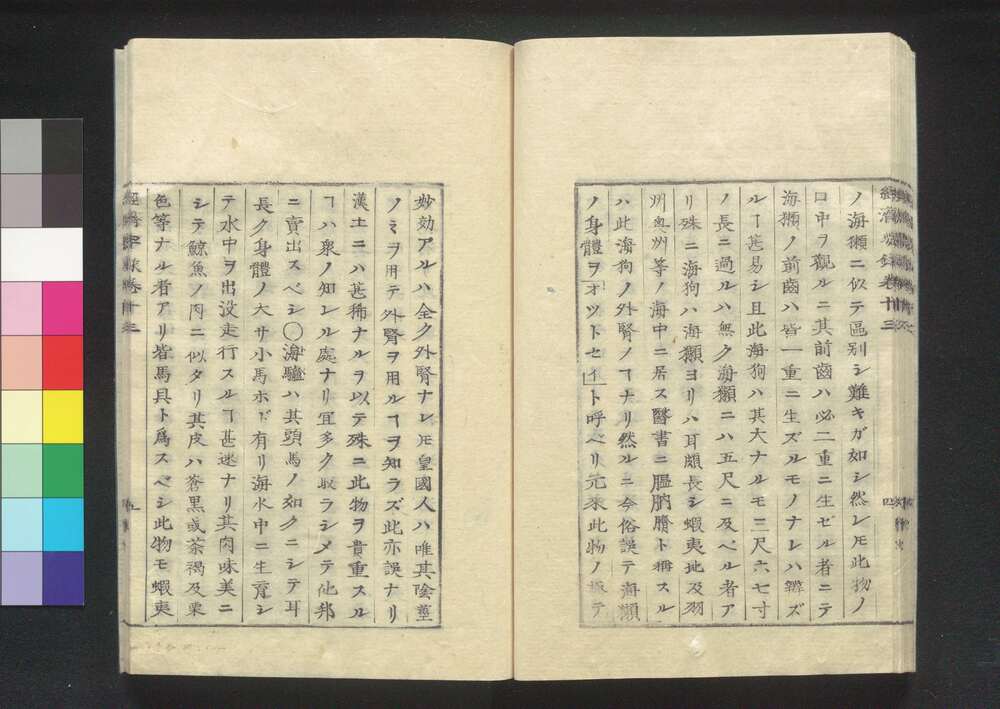 ノ海獺ニ似テ區别シ難キガ如シ然レ𪜈此物ノ
口中ヲ觀ルニ其前齒ハ必二重ニ生ゼル者ニテ
海獺ノ前齒ハ皆一重ニ生ズルモノナレハ辨ズ
ルヿ甚易シ且此海狗ハ其大ナルモ三尺六七寸
ノ長ニ過ルハ無ク海獺ニハ五尺ニ及ベル者ア
リ殊ニ海狗ハ海獺ヨリハ耳頗長シ蝦夷地及羽
州奥州等ノ海中ニ居ス醫書ニ膃肭臍ト稱スル
ハ此海狗ノ外腎ノヿナリ然ルニ今俗誤テ海獺
ノ身體ヲオツトセイト呼ベリ元来此物ノ極テ
妙効アルハ全ク外腎ナレ𪜈皇國人ハ唯其陰莖
ノミヲ用テ外腎ヲ用ルヿヲ知ラズ此亦誤ナリ
漢土ニハ甚稀ナルヲ以テ殊ニ此物ヲ貴重スル
ヿハ衆ノ知レル處ナリ宜多ク取ラシメテ他邦
ニ賣出スベシ〇海驢ハ其頭馬ノ如クニシテ耳
長ク身體ノ大サ小馬ホド有リ海水中ニ生育シ
テ水中ヲ出没走行スルヿ甚迷ナリ其肉味美ニ
シテ鯨魚ノ肉ニ似タリ其皮ハ蒼黒或茶褐及栗
色等ナル者アリ皆馬具ト爲スベシ此物モ蝦夷